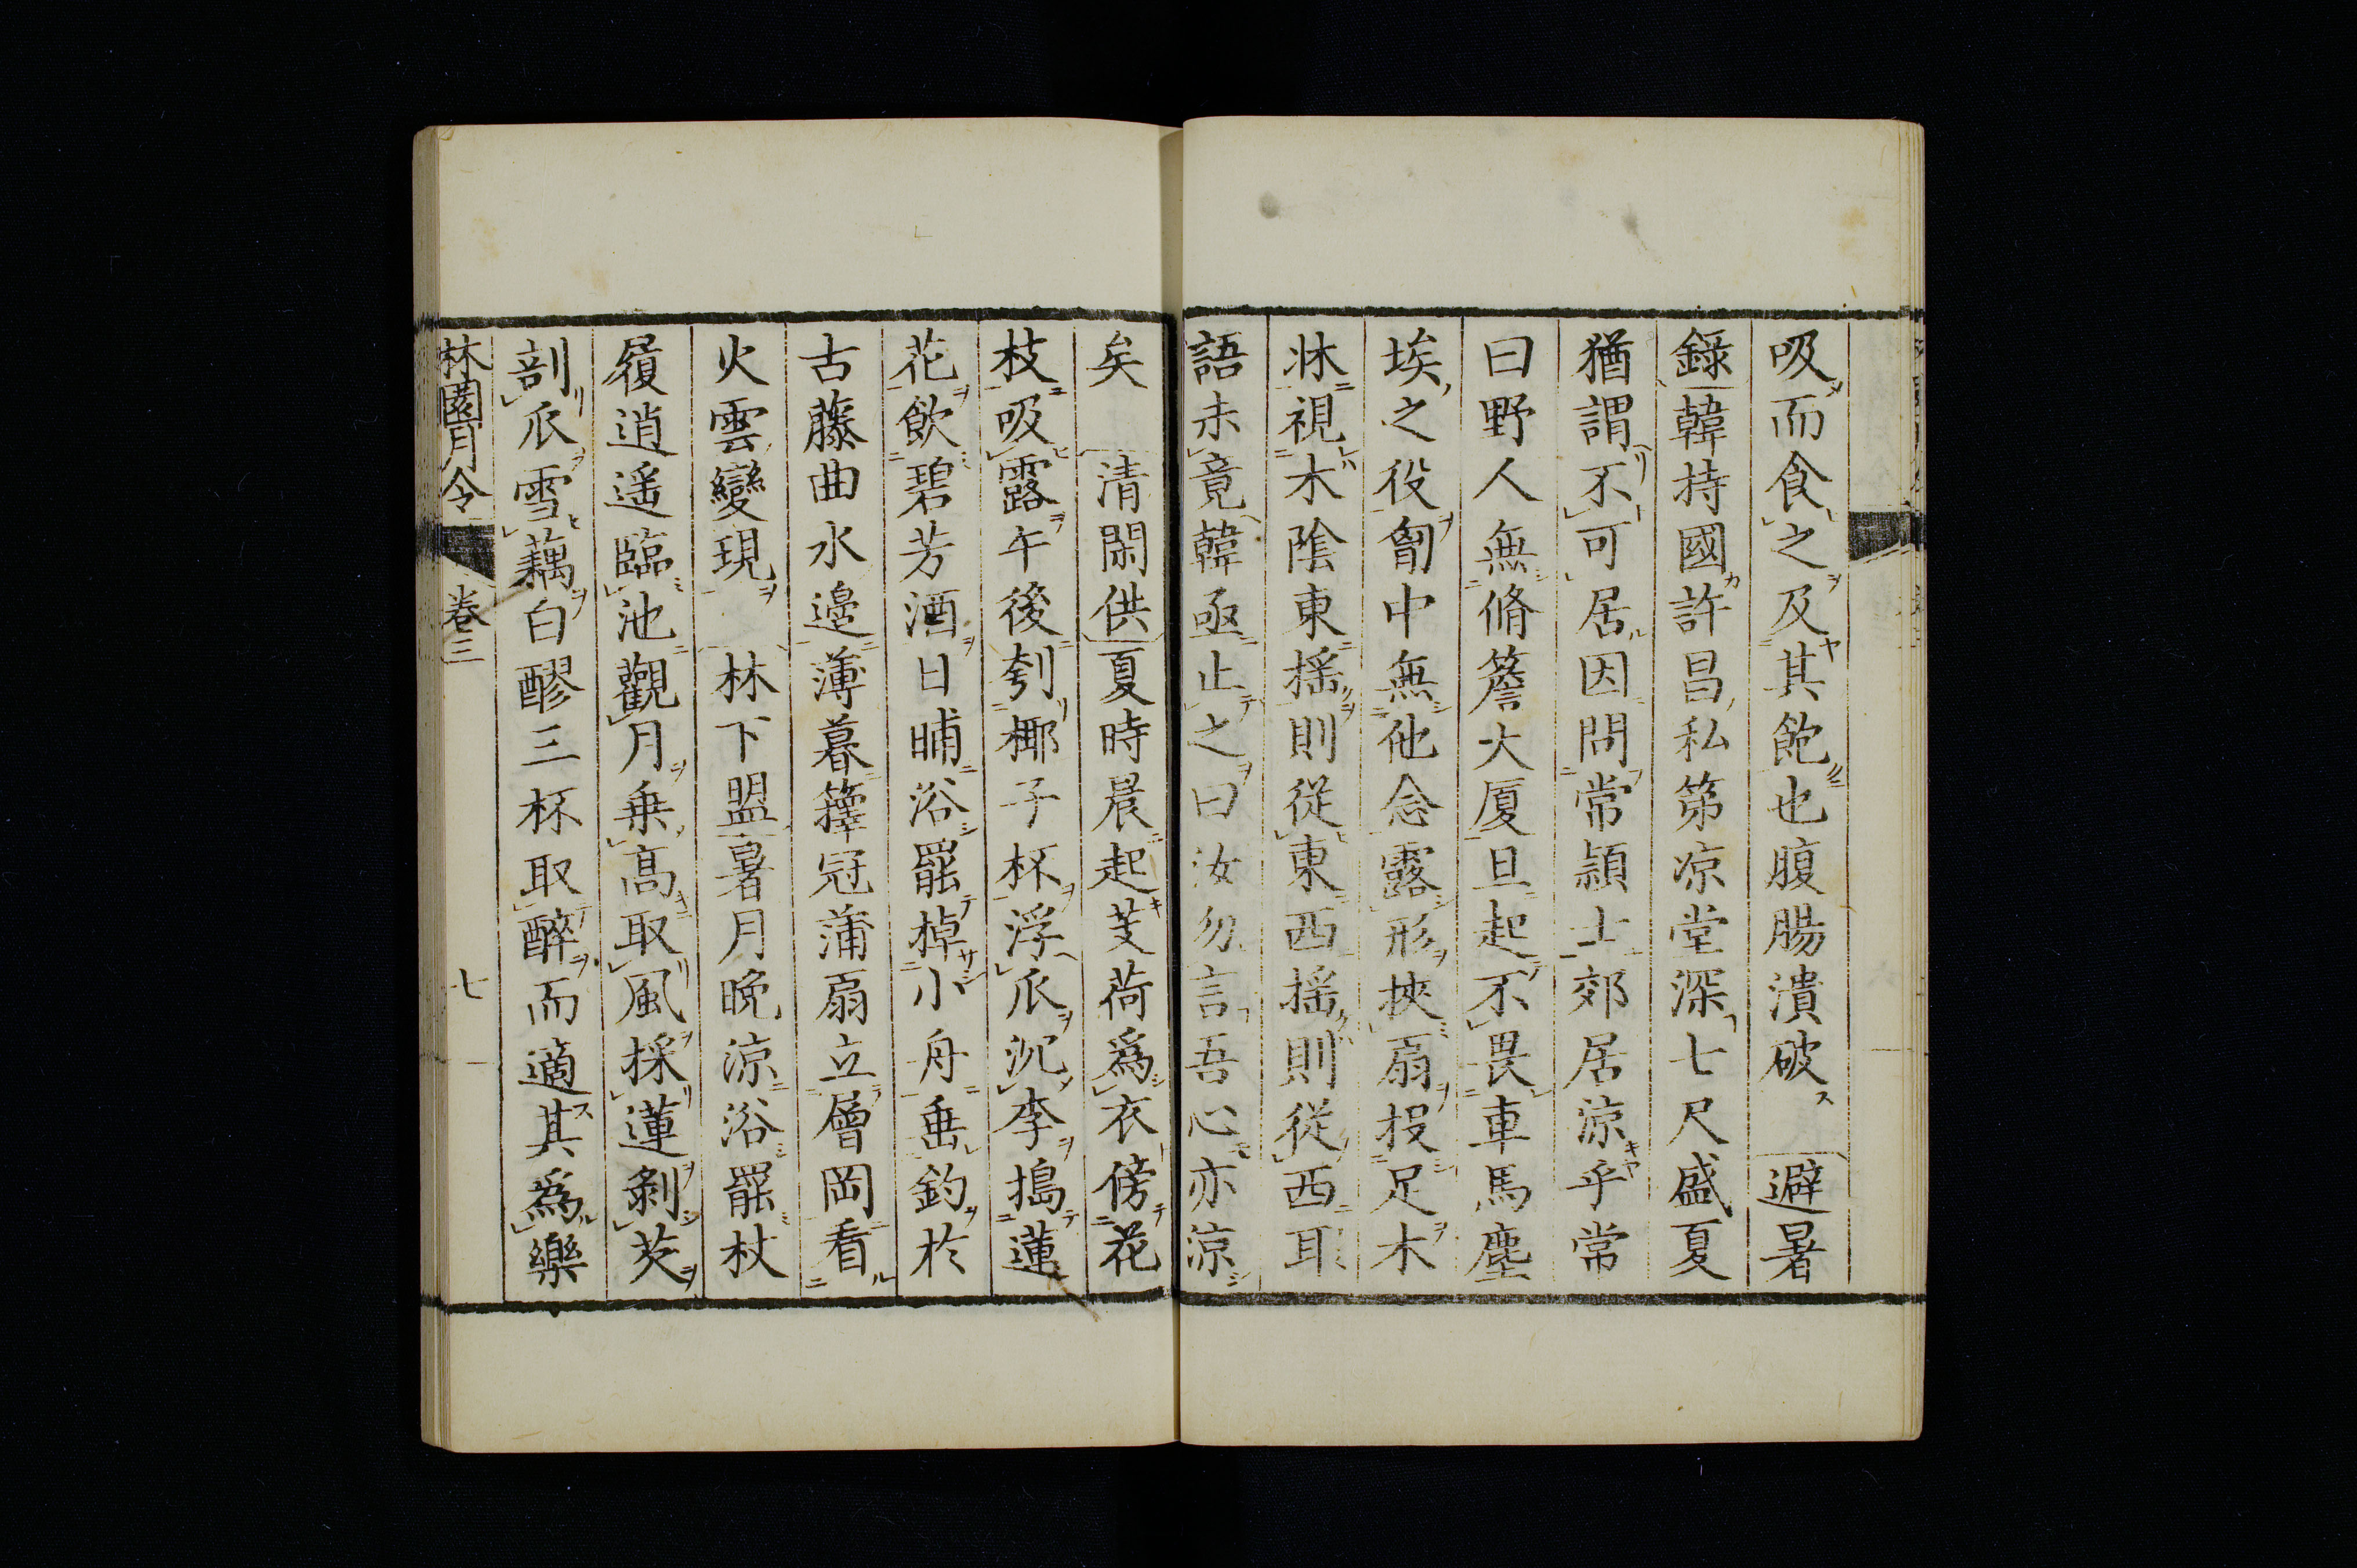 吸而食之及其飽也腹腸潰破　避暑
錄韓持國許昌私第凉堂深七尺盛夏
猶謂不可居因問常頴士郊居涼乎常
曰野人無脩簷大厦旦起不畏車馬塵
埃之役胷中無他念露形挾扇投足木
牀視木陰東揺則從東西揺則從西耳
語未竟韓亟止之曰汝勿言吾心亦涼
矣　清閑供夏時晨起芰荷爲衣傍花
枝吸露午後刳椰子杯浮瓜沉李搗蓮
花飲碧芳酒日晡浴罷棹小舟垂釣於
古藤曲水邊薄暮籜冠蒲扇立層岡看
火雲變現　林下盟暑月晩涼浴罷杖
履逍遥臨池觀月乗高取風採蓮剝芡
剖瓜雪藕白醪三杯取醉而適其爲樂
林園月令　卷三　七